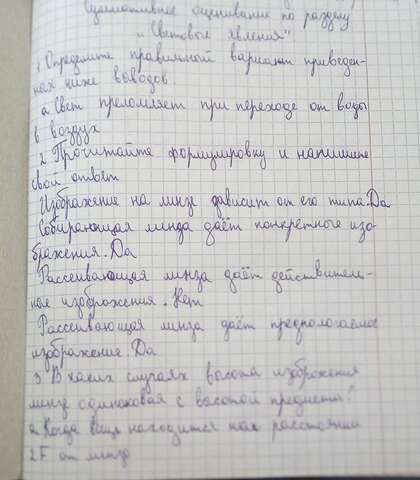 Суммативное оценивание по разделу
"Световые явления"
1 Определите правильной вариант приведен-
ных ниже выводов
а. Свет преломляет при переходе от воды
в воздух
2 Прочитайте формулировку и напишите
свой ответ
Изображение на линзе зависит от его типа. Да
Собирающая линза даёт конкретные изо-
бражения. Да
Рассеивающая линза даёт действитель-
ное изображения. Нет
Рассеивающая линза даёт предпологаемое
изображение. Да
3 В каких случаях высота изображения
линзы одинаковая с высотой предмета?
а. Когда вещь находится на расстоянии
2F от линзы